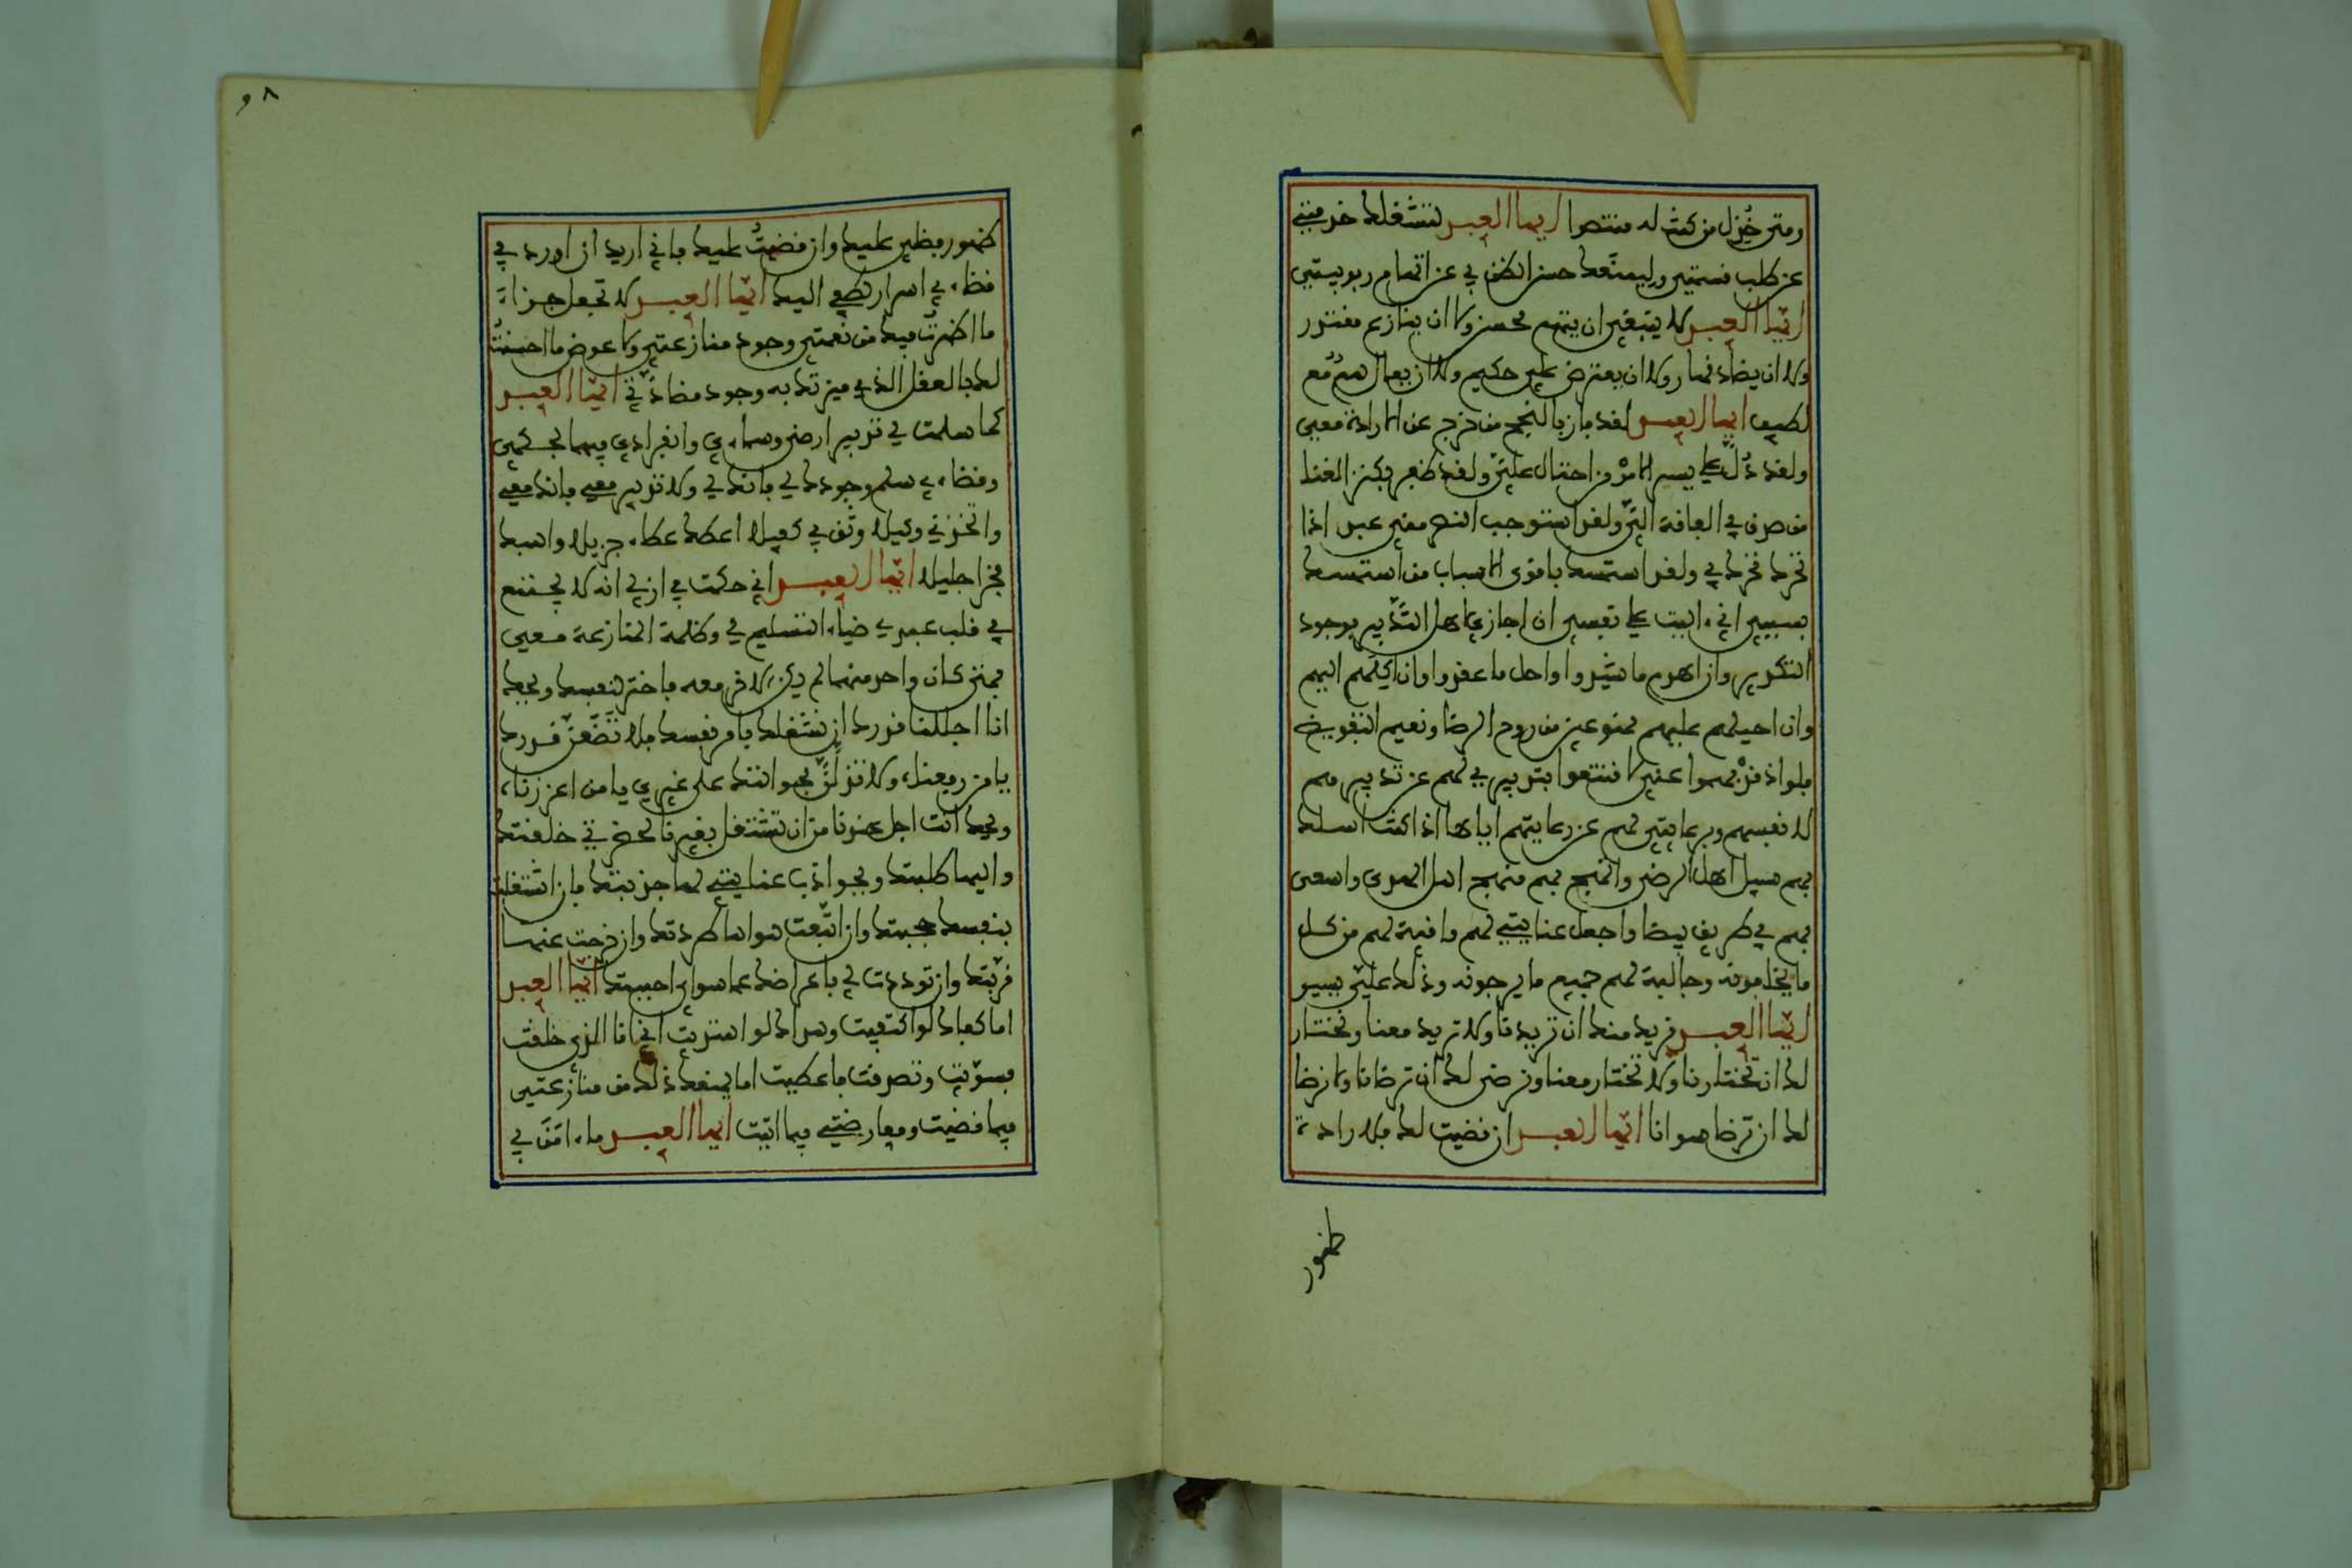 ومتى خُذِل من كنت له منتصرا ايها العبد لتشغلك خدمتي
عن طلب قسمتي وليمنَعك حسن الظن بي عن اتهام ربوبيتي
ايّها العبد لا ينبغي ان يتهم محسن ولا ان ينازع مقتدر
ولا ان يضادّ قهار ولا ان يعترض على حكيم ولا ان يعال همٌّ مع
لطيف ايها العبد لقد فاز بالنجح من خرج عن الارادة معي
ولقد دُلّ على يسر الامر من احتال عليّ ولقد ظفر بكنز الغنا
من صدق في الفاقة اليّ ولقد استوجب النصر مني عبد اذا
تحرك تحرك بي ولقد استمسك باقوى الاسباب من استمسك
بسببي اني ءاليت على نفسي ان اجازي اهل التدّبير بوجود
التكدير وان اهدم ما شيّدوا واحل ما عقدوا وان اكلهم اليهم
وان احيلهم عليهم ممنوعين من روح الرضا ونعيم التفويض
فلو اذ فهموا عني لا قنعوا بتدبيري لهم عن تدبيرهم
لانفسهم وبرعايتي لهم عن رعايتهم اياها اذا كنت اسلك
بهم سبيل اهل الرضى وانهج بهم منهج اهل الهدى واسعى
بهم في طريق بيضا واجعل عنايتي لهم واقية لهم من كل
ما يخافونه وجالبة لهم جميع ما يرجونه وذلك عليّ يسير
ايّها العبد نريد منك ان تريدنا ولا تريد معنا ونختار
لك ان تختارنا ولا تختار معنا ونرضى لك ان ترضانا ولا نرضا
لك ان ترضا سوانا ايّها العبد ان قضيت لك فلارادة
ظهور
٩٨
ظهور فظلي عليك وان قضيتُ عليك فاني اريد ان اورد في
قضاءي اسرار لطفي اليك ايّها العبد لا تجعل جزاءَ
ما اظهرتُ فيك من نعمتي وجود منازعتي ولا عوض ما احسنتُ
لك بالعقل الذي ميزتك به وجود مضادّتي ايّها العبد
كما سلمت لي تدبير ارضي وسماءي وانفرادي فيهما بحكمي
وقضاءي سلم وجودك لي فانك لي ولا تدبير معي فانك معي
واتخذني وكيلا وثق بي كفيلا اعطك عطاء جزيلا واهبك
فخرا جليلا ايّها العبد اني حكمت في ازلي انه لا يجتمع
في قلب عبدي ضياء التسليم لي وظلمة المنازعة معي
فمتى كان واحد منهما لم يكن الاخر معه فاختر لنفسك ويحك
انا اجللنا قدرك ان نشغلك بامر نفسك فلا تضَّعنّ قدرك
يا من رفعناه ولا تذلنَّ بحوالتك على غيري يا من اعززناه
ويحك انت اجل عندنا من ان تشتغل بغيرنا لحضرتي خلقتك
واليها طلبتك وبجواذب عنايتي لها جذبتك فان اشتغلت
بنفسك حجبتك وان اتّبعت هواها طردتك وان خرجت عنها
قربّتك وان توددت لي باعراضك عما سواي احببتك ايّها العبد
اما كفاك لو اكتفيت وهداك لو اهتديت اني انا الذي خلقت
فسوّيت وتصدقت فاعطيت اما يمنعك ذلك من منازعتي
فيما قضيت ومعارضتي فيما اتيت ايها العبد ماءامَنَ بي